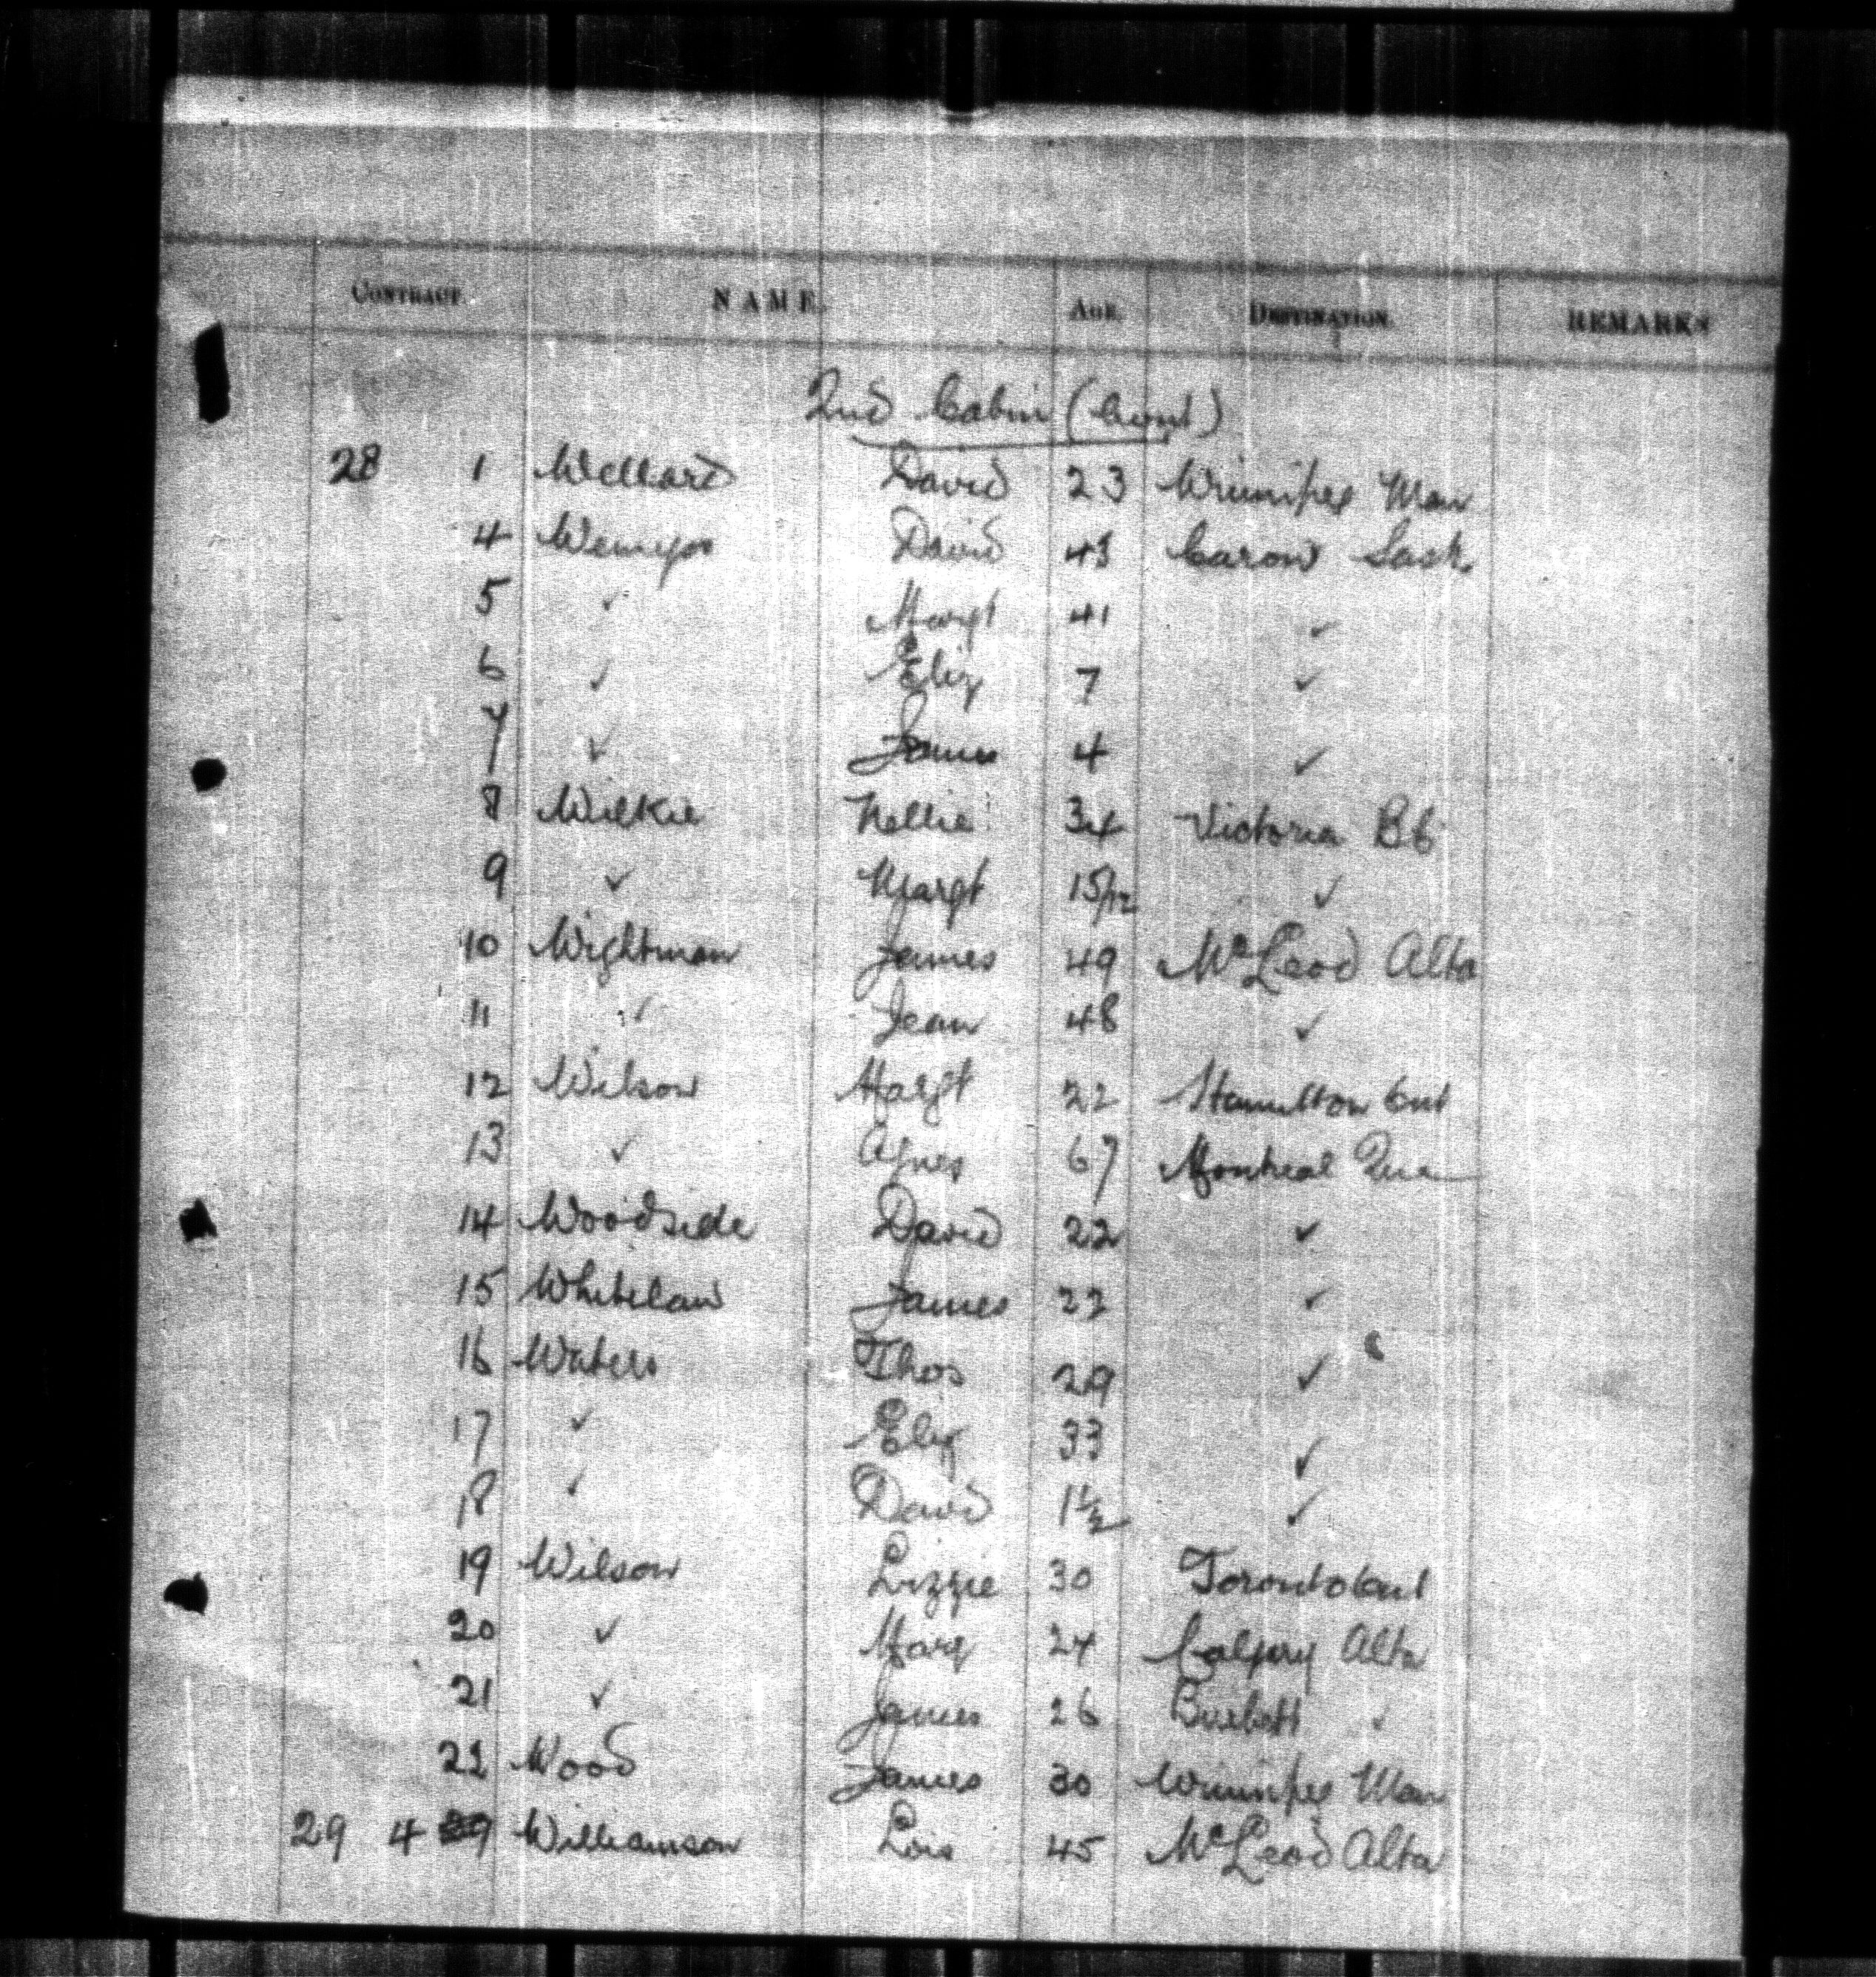 CONTRACT. NAME. AGE. DESTINATION. REMARKS
2nd Cabin (Cont)
28 1 Wellard David 23 Winnipeg Man
4 Wemyss David 43 Caron Sask
5 ✓ Margt 41 ✓
6 ✓ Eliz 7 ✓
7 ✓ James 4 ✓
8 Wilkie Nellie 34 Victoria BC
9 ✓ Margt 15/12 ✓
10 Wightman James 49 McLeod Alta
11 ✓ Jean 48 ✓
12 Wilson Margt 22 Hamilton Ont
13 ✓ Agnes 67 Montreal Que
14 Woodside David 22 ✓
15 Whitelaw James 22 ✓
16 Waters Thos 29 ✓
17 ✓ Eliz 33 ✓
18 ✓ David 1½ ✓
19 Wilson Lizzie 30 Toronto Ont
20 ✓ Mary 24 Calgary Alta
21 ✓ James 26 ✓
22 Wood James 30 Winnipeg Man
29 4 Williamson Lois 45 McLeod Alta